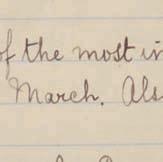 of the most in
March. Als